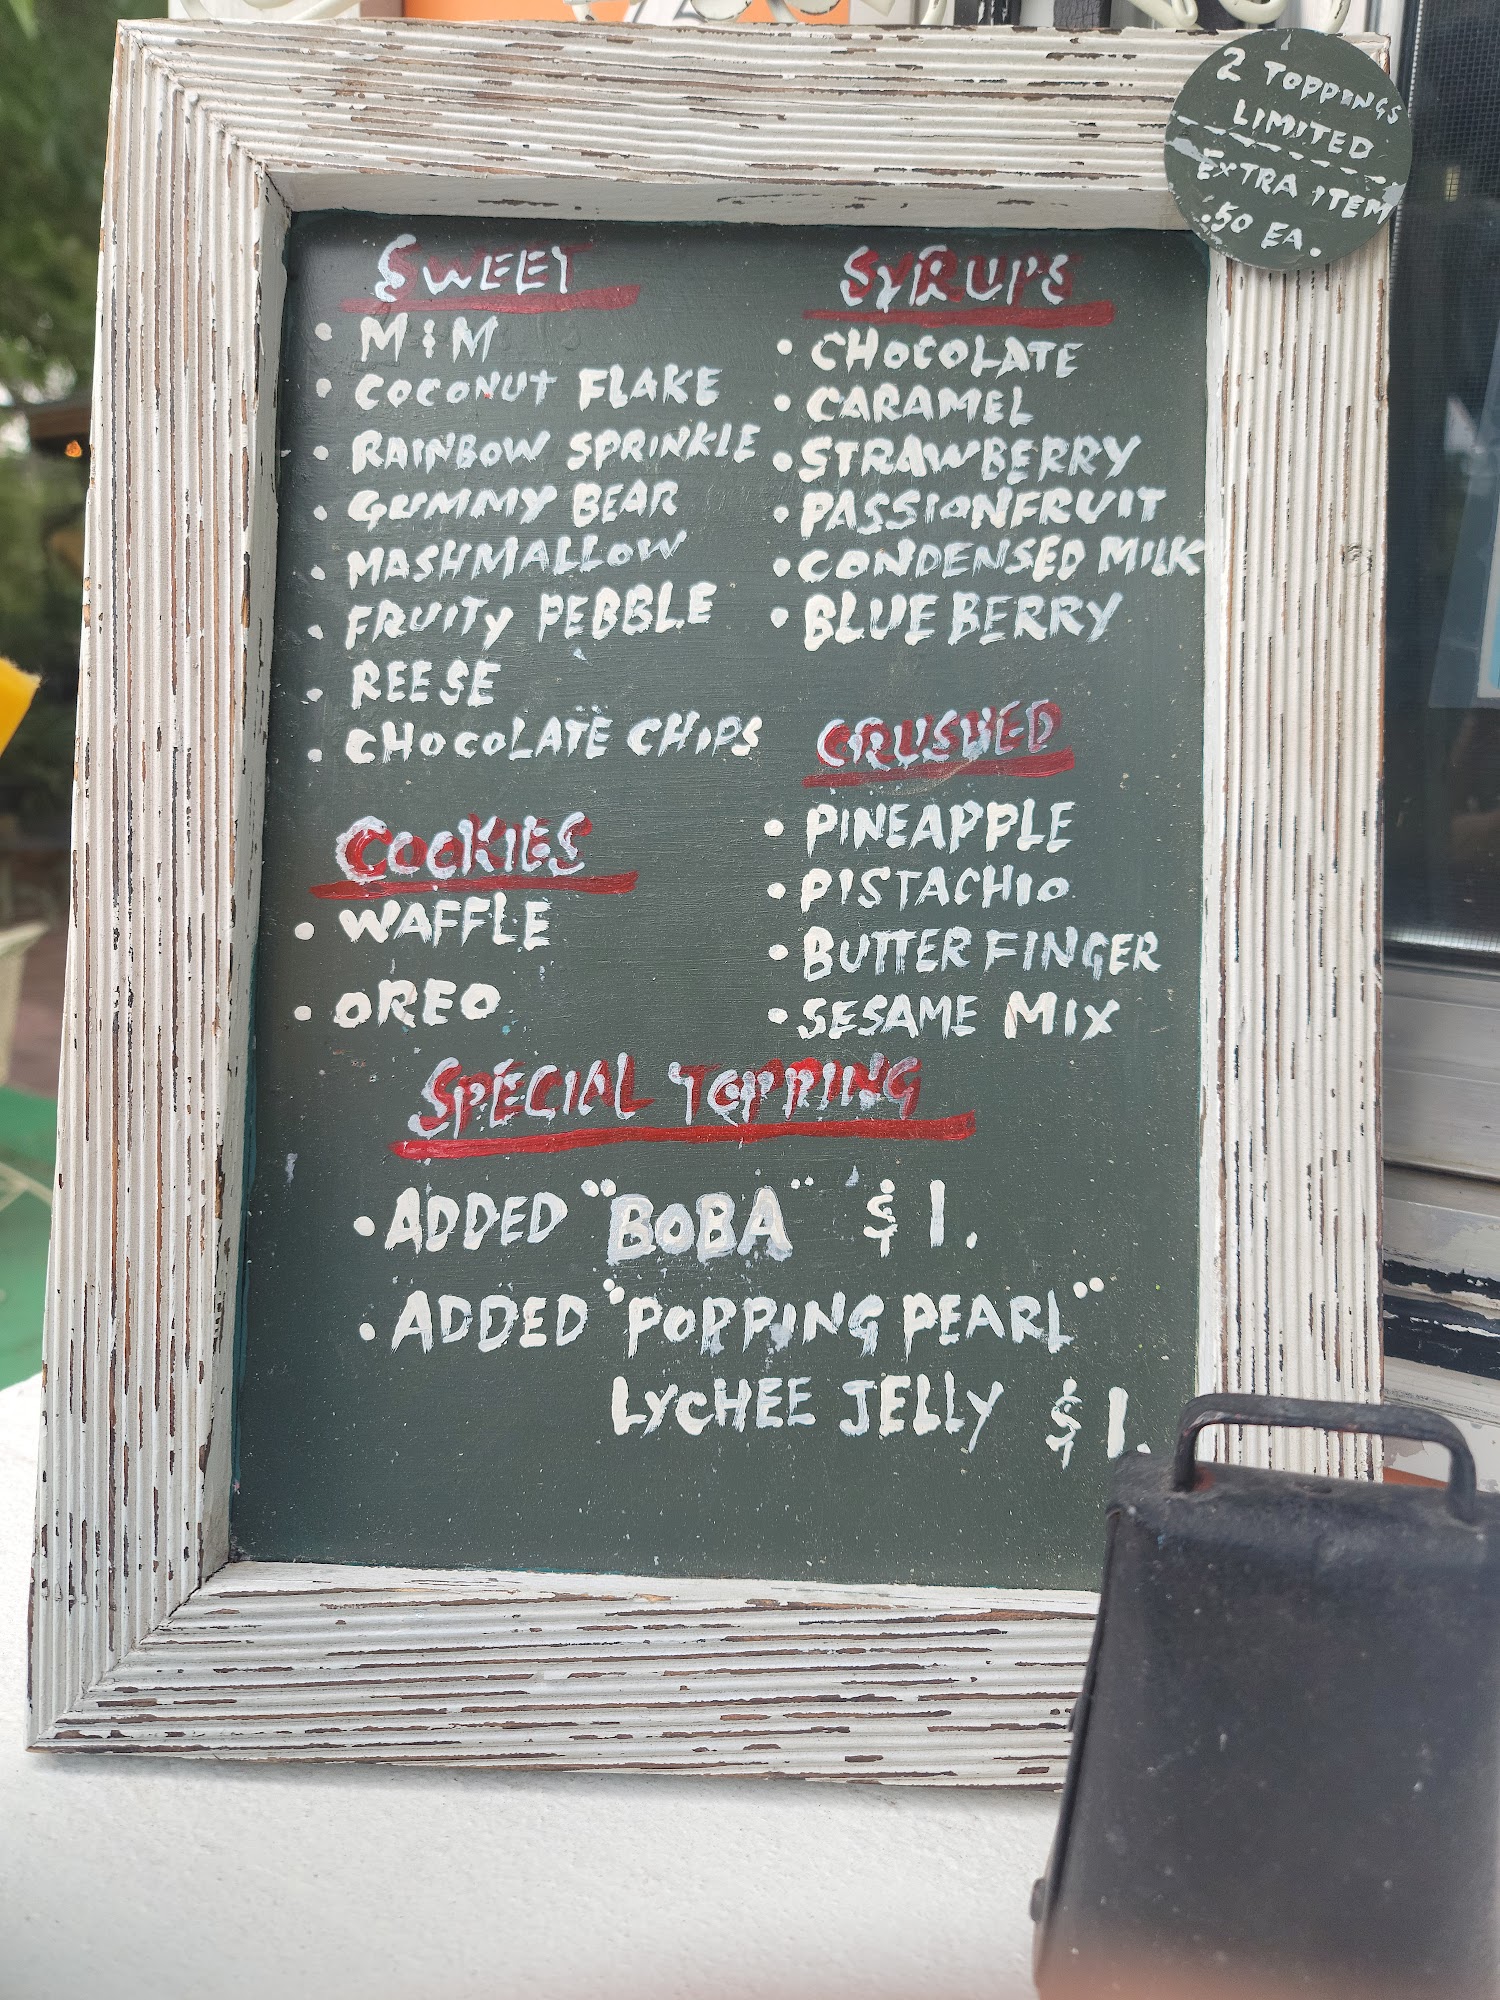 2 TOPPINGS
LIMITED
EXTRA ITEM
.50 EA.
SWEET
• M&M
• COCONUT FLAKE
• RAINBOW SPRINKLE
• GUMMY BEAR
• MASHMALLOW
• FRUITY PEBBLE
• REESE
• CHOCOLATE CHIPS
COOKIES
• WAFFLE
• OREO
SYRUPS
• CHOCOLATE
• CARAMEL
• STRAWBERRY
• PASSIONFRUIT
• CONDENSED MILK
• BLUEBERRY
CRUSHED
• PINEAPPLE
• PISTACHIO
• BUTTER FINGER
• SESAME MIX
SPECIAL TOPPING
• ADDED "BOBA" $1.
• ADDED "POPPING PEARL"
LYCHEE JELLY $1.